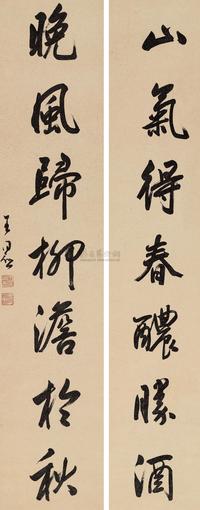 山氣得春醲勝酒
晚風歸柳澹於秋
王昱